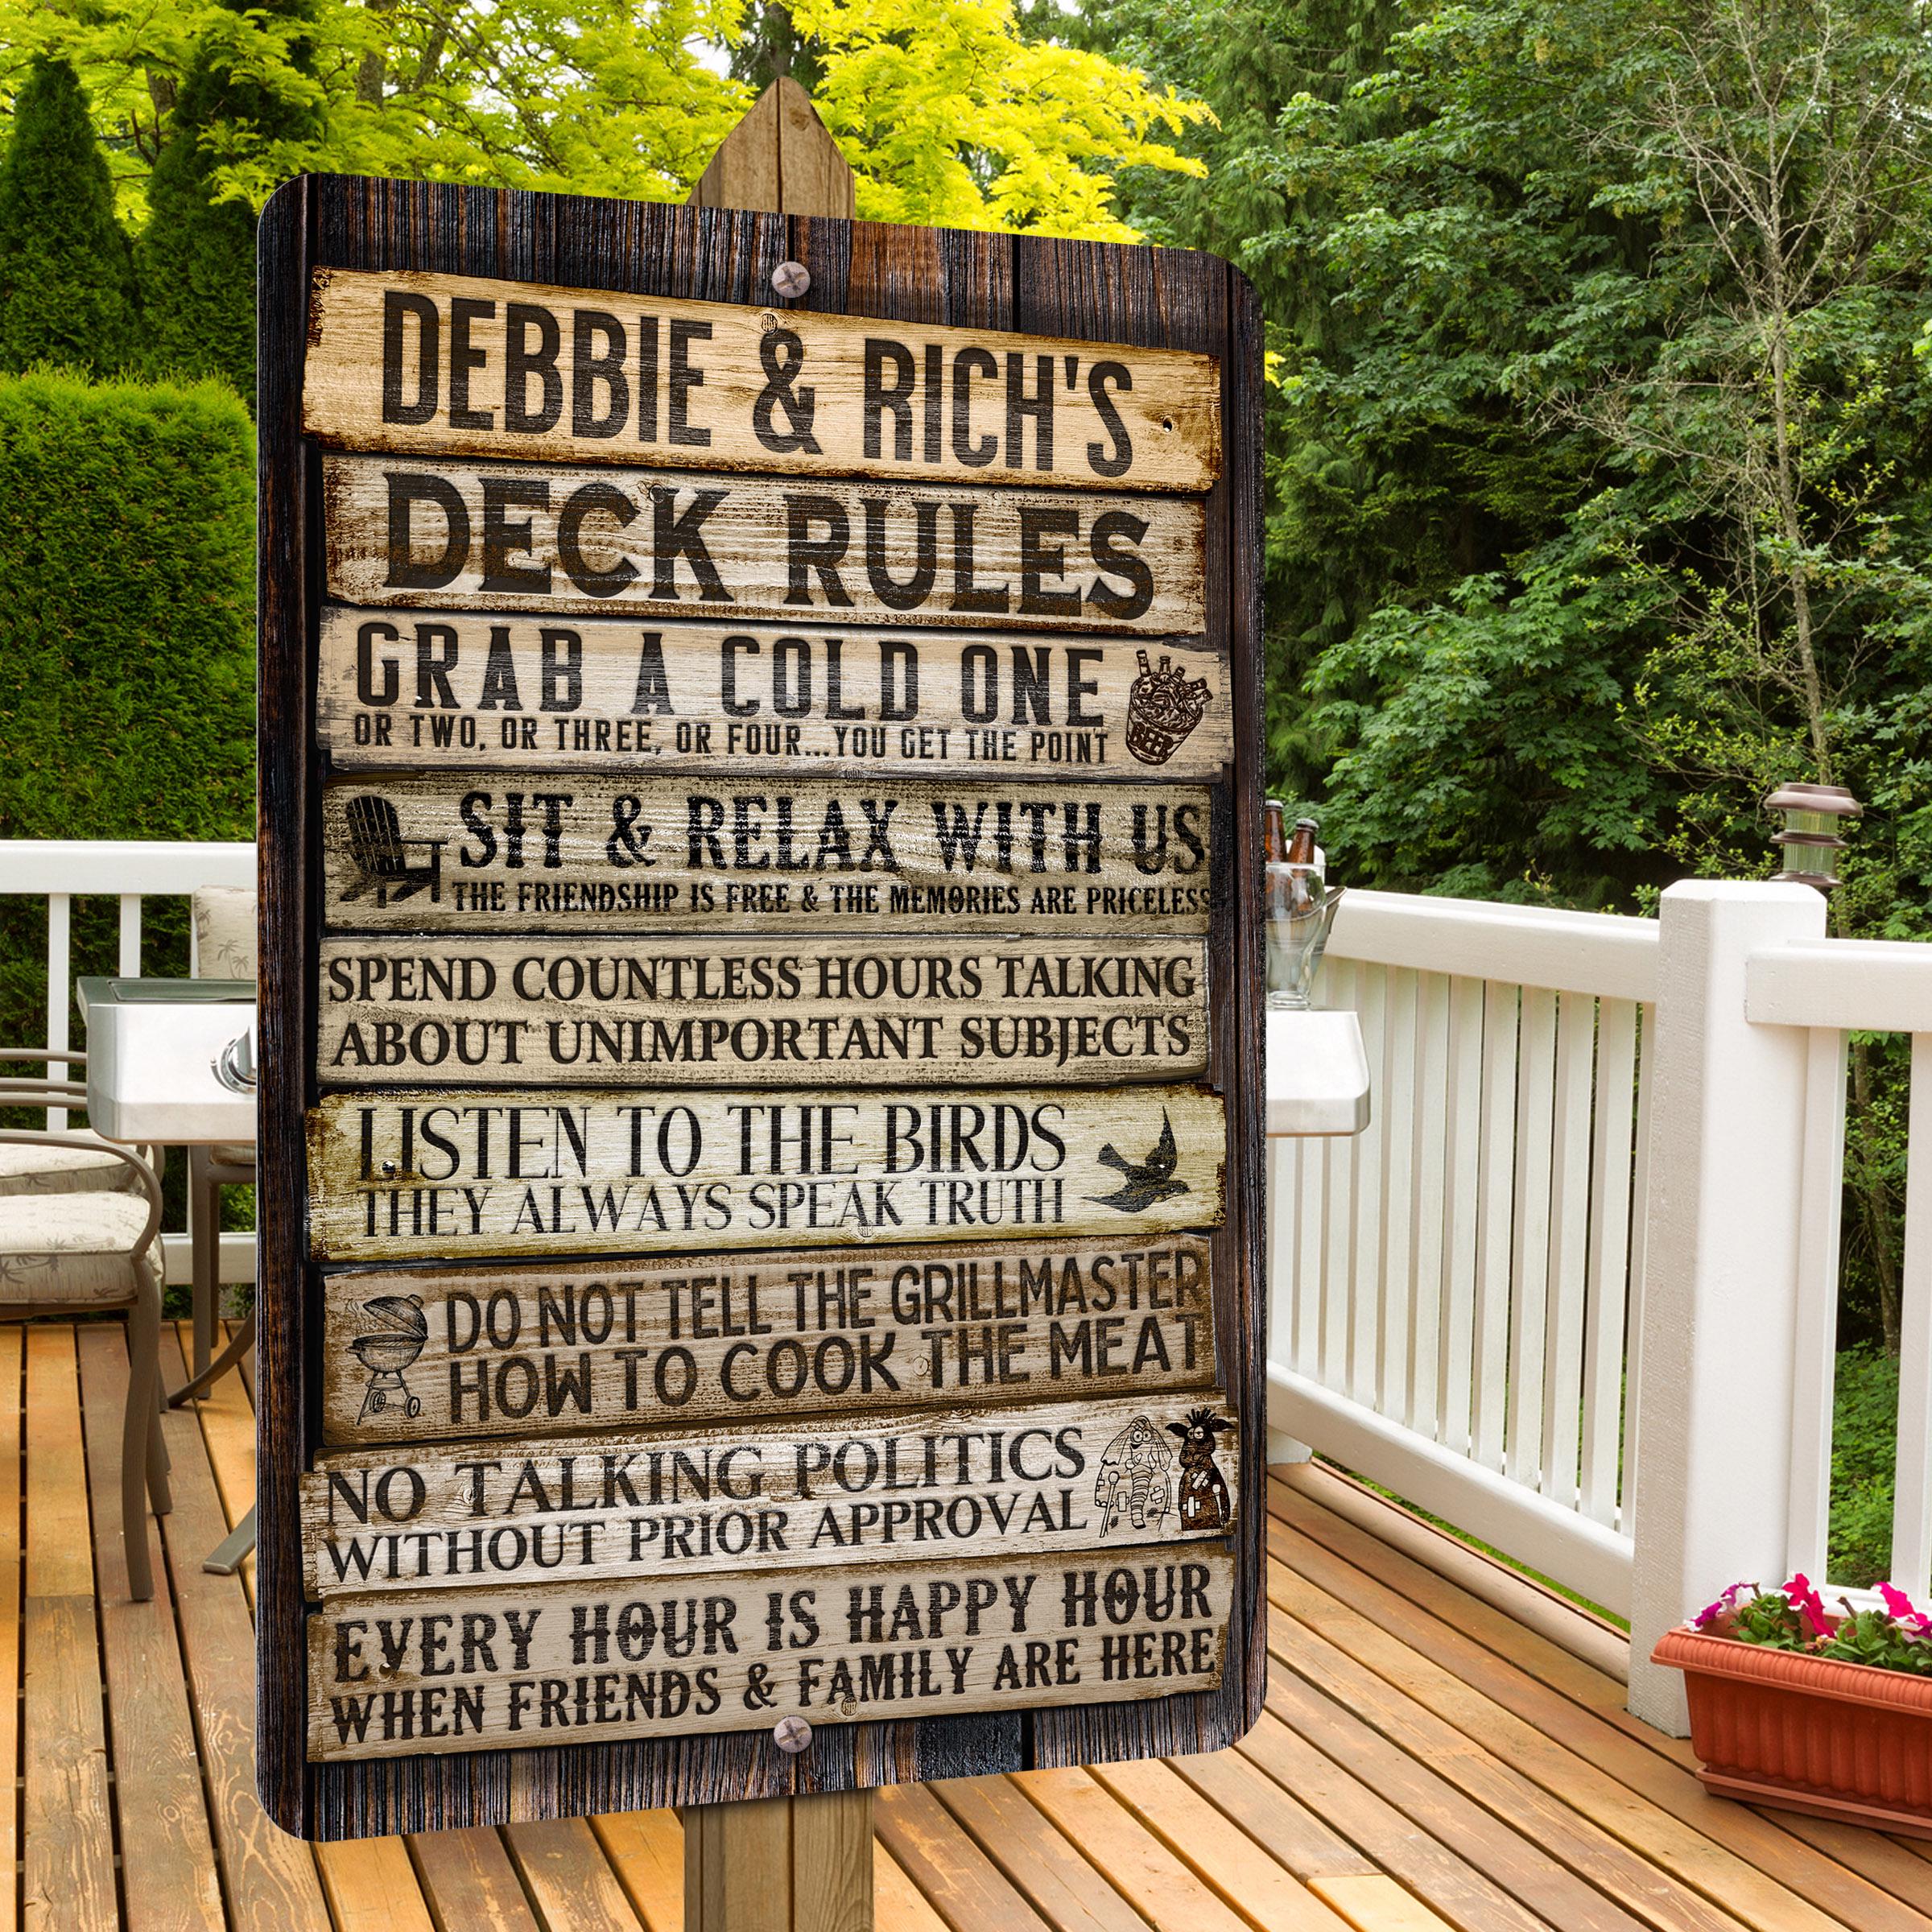 DEBBIE & RICH'S
DECK RULES
GRAB A COLD ONE
OR TWO, OR THREE, OR FOUR...YOU GET THE POINT
BEER
SIT & RELAX WITH US
THE FRIENDSHIP IS FREE & THE MEMORIES ARE PRICELESS
SPEND COUNTLESS HOURS TALKING
ABOUT UNIMPORTANT SUBJECTS
LISTEN TO THE BIRDS
THEY ALWAYS SPEAK TRUTH
DO NOT TELL THE GRILLMASTER
HOW TO COOK THE MEAT
NO TALKING POLITICS
WITHOUT PRIOR APPROVAL
EVERY HOUR IS HAPPY HOUR
WHEN FRIENDS & FAMILY ARE HERE